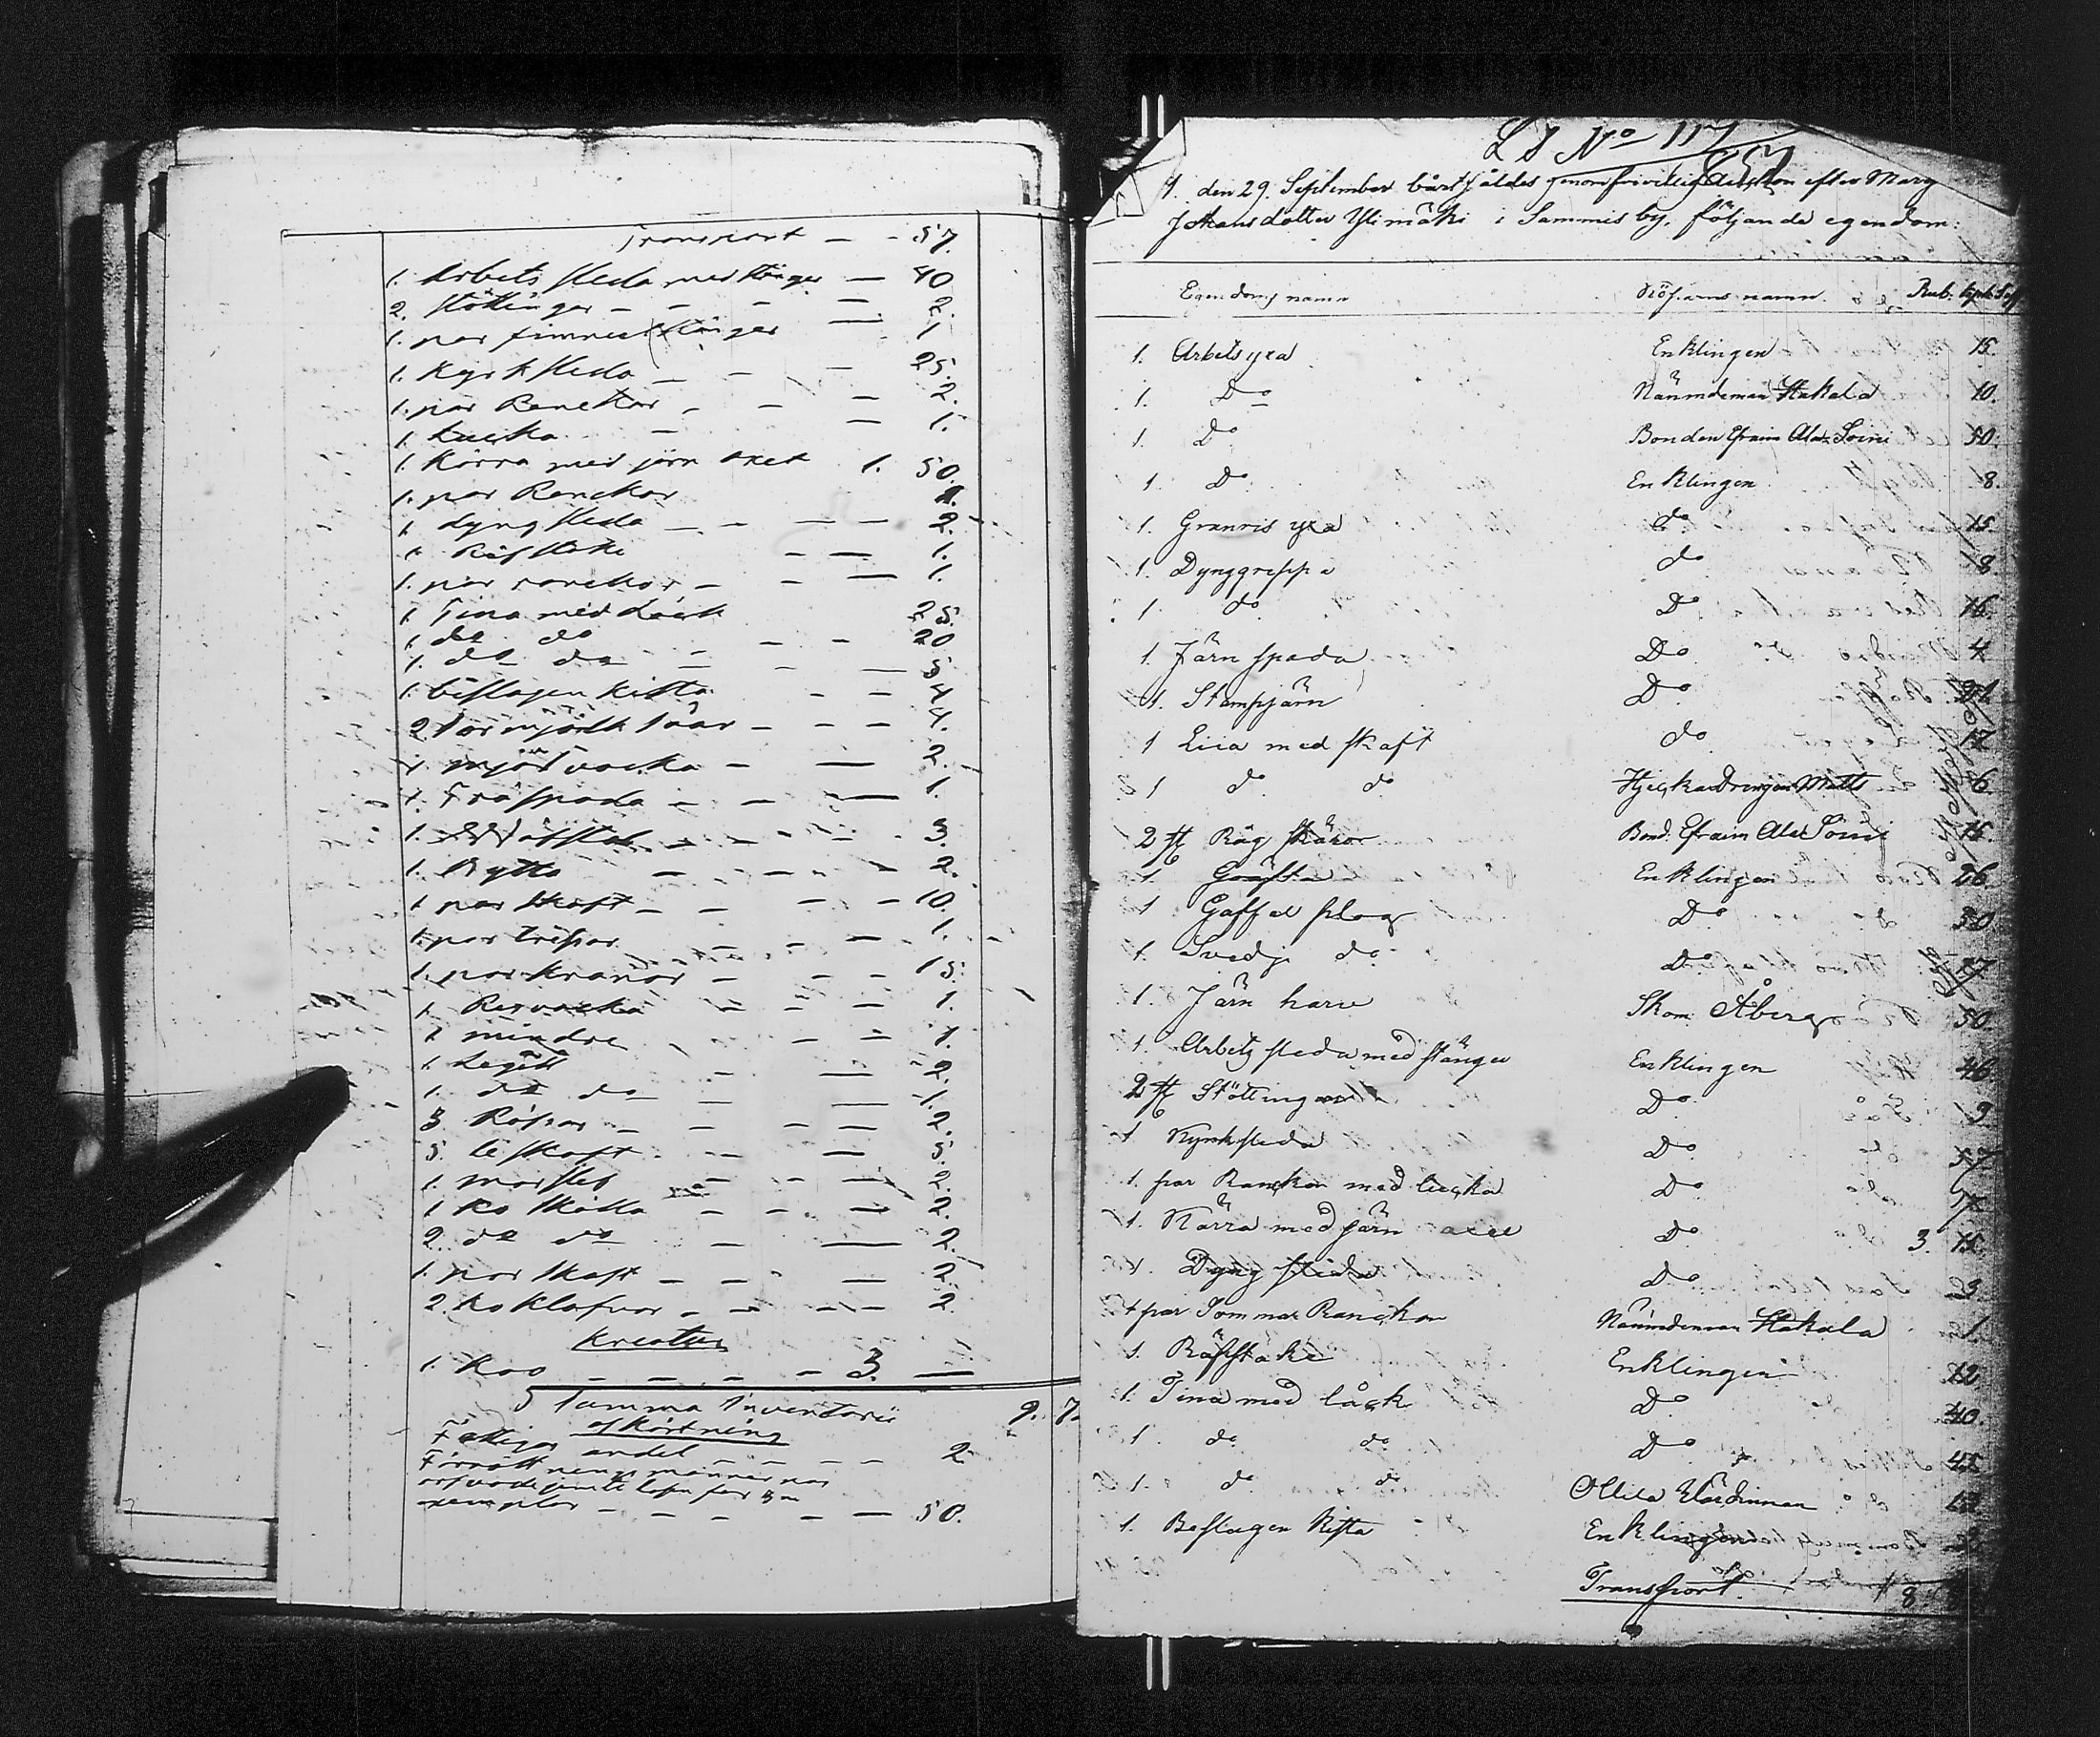 Transport — - 57.
1. Arbets sleda med stänger — 40
2. Stöttingar - - - — 2.
1. par timmerstänger — 1
1. Kyrksleda — - - 25.
1. par Renckor - - — 2.
1. Lucka - — 1.
1. Kärra med järn axel 1. 50.
1. par Renckor 1.
1. dyngsleda — - — — 2.
1. Räfstake - — 1.
1. par ranckor - - — 1.
1. Tina med Låck 25.
1. do do - - 20
1. do do - - — 5
1. beslagen kista - - 4
2. Surmjölk såar - - - 4.
1. mjöl vacka - — 2.
1. Träspada - - — 1.
1. - - - 3.
1. Bytta - - - 2.
1. par skaft - - - - 10.
1. par trissor - - — 1.
1. par kranor - - - 15.
1. - - - 1.
1 mindre - - - 1.
1. - — 2.
1. do do - — 1.
3. - - - — 2.
5. lieskaft - — 5.
1. - - — 2.
1 Ko skälla - - - 2.
2. do do - — 2.
1. par skaft - - - — 2.
2. Ko Klafvar - - - - 2.
Kreatur
1. Koo - - - - 3. —
Summa Inventarii 9. 7
afkortning
Fattiges andel - - - - 2
Förrättnings männernas
arfvode jemte lösen för
exemplar - - - - — 50.
L I No 117
den 29. September bårtsåldes genom frivillig Auktion efter Marg
Johansdotter Ylimäki i Sammis by, följande egendom:
Egendoms namn Köparns namn. Rub. Kop. Silf
1. Arbetsyxa Enklingen 15.
1. Do Nämndeman Hakala 10.
1. Do Bonden Efraim Ala Soini 50.
1 Do Enklingen 8.
1. Granris yxa do 15.
1. Dynggreppe do 8.
1. do Do 16.
1. Järn spada Do 4
1. Stampjärn Do 21.
1 Liia med skaft do 17
1 do do drengen Matts 6.
2 st Råg skäror Bond. Efraim Ala Soini 15.
1. Enklingen 26.
1 Gaffel plog Do 30.
1. Svedje do Do 27
1. Järn harv Skom. Åberg 50.
1. Arbetz sleda med stänger Enklingen 46
2 st Stöttingar Do 3
1 Kyrksleda Do 37
1. par Ranckor med lucka Do 4
1. Kärra med järn axel Do 3. 15.
1. Dyng sleda Do 23
1 par Sommar Ranckor Nämndeman Hakala 1.
1. Räfstake Enklingen 12.
1. Tina med låck Do 40.
1. do do Do 45
1. do do Ollila Värdinnan 12
1. Beslagen Kista Enklingen
Transport. 8